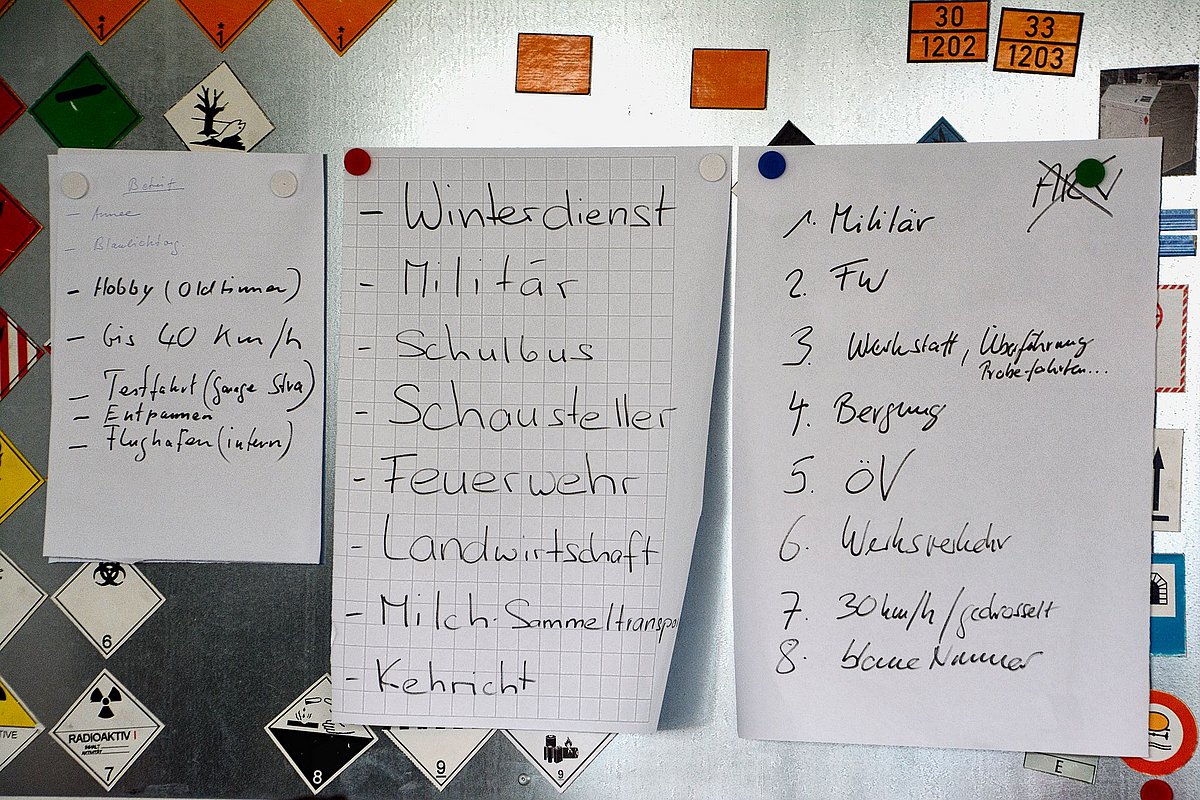 1
1
1
30
1202
33
1203
- Armee
- Hobby (Oldtimmer)
- bis 40 Km/h
- Testfahrt (Garage Stva)
- Entpannen
- Flughafen (intern)
- Winterdienst
- Militär
- Schulbus
- Schausteller
- Feuerwehr
- Landwirtschaft
- Milch-Sammeltranspo
- Kehricht
ARV
1. Militär
2. FW
3. Werkstatt, Überführung
Probefahrten...
4. Bergung
5. ÖV
6. Werksverkehr
7. 30 km/h / gedrosselt
8. blaue Nummer
6
TIVE
RADIOAKTIV I
INHALT
AKTIVITÄT
7
8
9
9
E